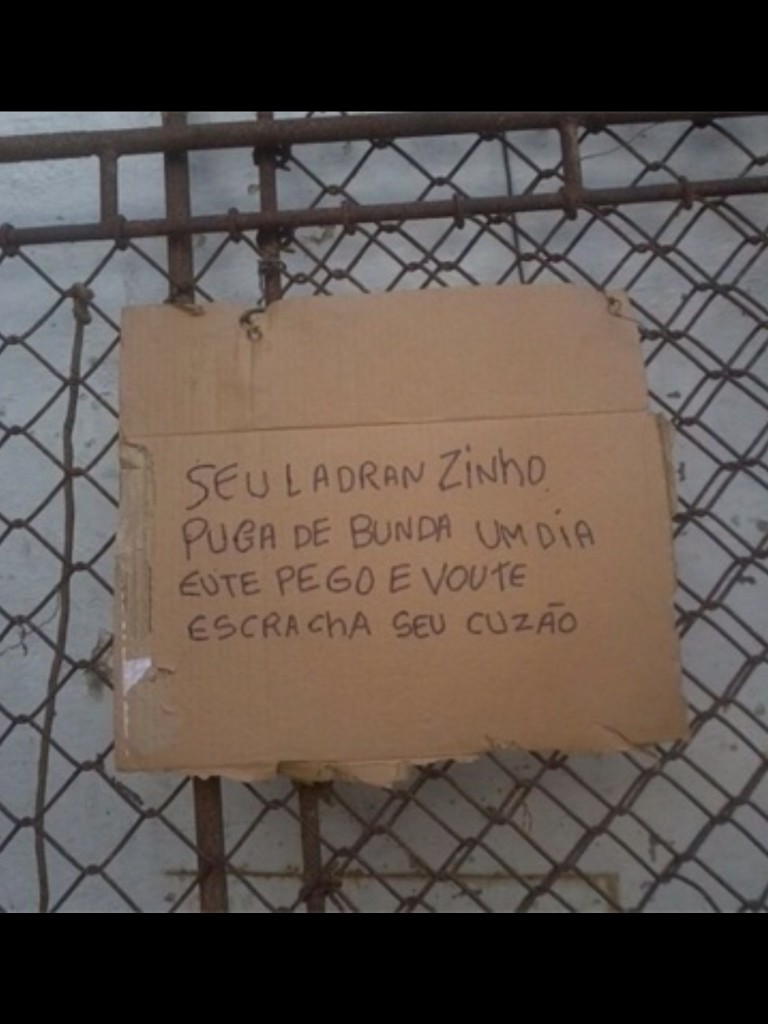 SEU LADRAN ZINHO
PUGA DE BUNDA UM DIA
EUTE PEGO E VOUTE
ESCRACHA SEU CUZÃO